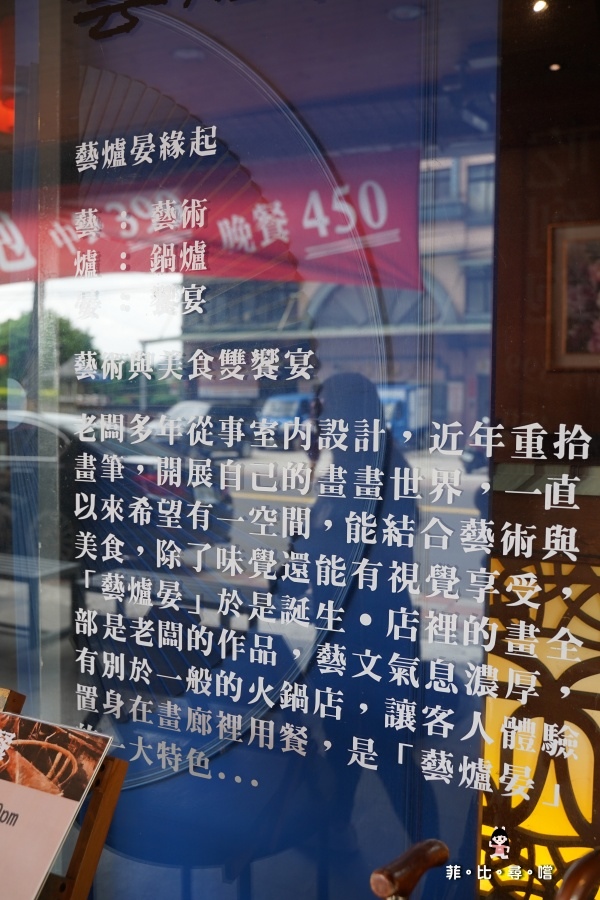 藝爐晏緣起
藝：藝術
爐：鍋爐
晏：饗宴
晚餐 450
藝術與美食雙饗宴
老闆多年從事室內設計，近年重拾
畫筆，開展自己的畫畫世界，一直
以來希望有一空間，能結合藝術與
美食，除了味覺還能有視覺享受，
「藝爐晏」於是誕生•店裡的畫全
部是老闆的作品，藝文氣息濃厚，
有別於一般的火鍋店，讓客人體驗
置身在畫廊裡用餐，是「藝爐晏」
的一大特色...
菲。比。尋。嚐